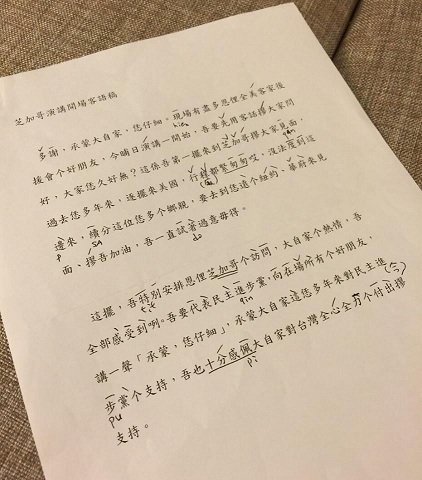 芝加哥演講開場客語稿
多謝,承蒙大自家,恁仔細。現場有盡多恩俚全美客家後
hien
援會个好朋友,今晡日演講一開始,吾要先用客話摎大家問
好,大家恁久好無?這係吾第一擺來到芝加哥摎大家見面,
過去恁多年來,逐擺來美國,行程都緊匆匆哎,沒法度到這
邊來,續分這位恁多个鄉親,要去到恁遠个紐約、華府來見
p sa
面、摎吾加油,吾一直試著過意毋得。
do
這擺,吾特別安排恩俚芝加哥个訪問,大自家个熱情,吾
tit
全部感受到咧。吾要代表民主進步黨,向在場所有个好朋友,
講一聲「承蒙,恁仔細」,承蒙大自家這恁多年來對民主進
步黨个支持,吾也十分感佩大自家對台灣全心全力个付出摎
pu pi
支持。